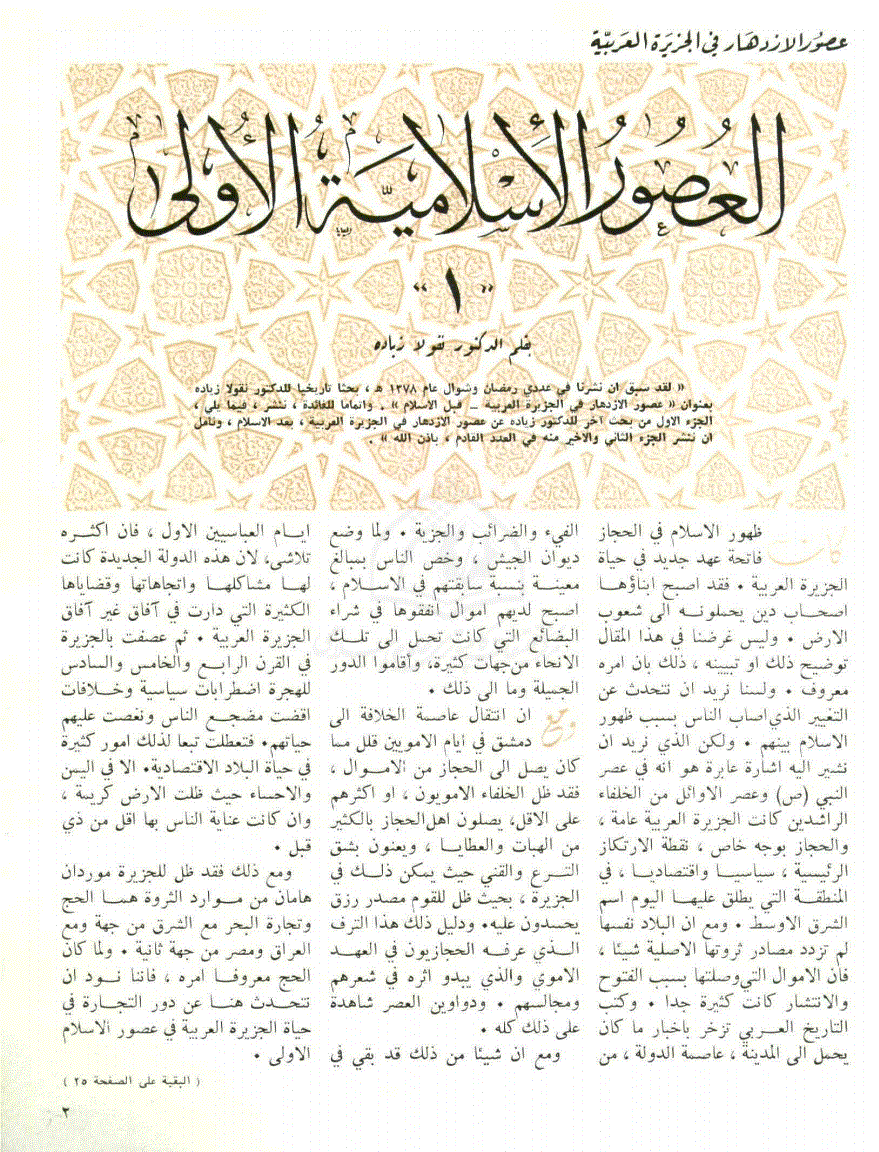 عصور الازدهار في الجزيرة العربية
العُصُورُ الأِسْلاميَّة الأُولى
«١»
بقلم الدكتور نقولا زياده
« لقد سبق ان نشرنا في عددي رمضان وشوال عام ١٣٧٨ هـ ، بحثا تاريخيا للدكتور نقولا زياده
بعنوان « عصور الازدهار في الجزيرة العربية ــ قبل الاسلام » . واتماما للفائدة ، ننشر ، فيما يلي ،
الجزء الاول من بحث آخر للدكتور زياده عن عصور الازدهار في الجزيرة العربية ، بعد الاسلام ، ونأمل
ان ننشر الجزء الثاني والاخير منه في العدد القادم ، باذن الله » .
كانت ظهور الاسلام في الحجاز
فاتحة عهد جديد في حياة
الجزيرة العربية . فقد اصبح ابناؤها
اصحاب دين يحملونه الى شعوب
الارض . وليس غرضنا في هذا المقال
توضيح ذلك او تبيينه ، ذلك بان امره
معروف . ولسنا نريد ان نتحدث عن
التغيير الذي اصاب الناس بسبب ظهور
الاسلام بينهم . ولكن الذي نريد ان
نشير اليه اشارة عابرة هو انه في عصر
النبي (ص) وعصر الاوائل من الخلفاء
الراشدين كانت الجزيرة العربية عامة ،
والحجاز بوجه خاص ، نقطة الارتكاز
الرئيسية ، سياسيا واقتصاديا ، في
المنطقة التي يطلق عليها اليوم اسم
الشرق الاوسط . ومع ان البلاد نفسها
لم تزدد مصادر ثروتها الاصلية شيئا ،
فان الاموال التي وصلتها بسبب الفتوح
والانتشار كانت كثيرة جدا . وكتب
التاريخ العربي تزخر باخبار ما كان
يحمل الى المدينة ، عاصمة الدولة ، من
الفيء والضرائب والجزية . ولما وضع
ديوان الجيش ، وخص الناس بمبالغ
معينة بنسبة سابقتهم في الاسلام ،
اصبح لديهم اموال انفقوها في شراء
البضائع التي كانت تحمل الى تلك
الانحاء من جهات كثيرة، وأقاموا الدور
الجميلة وما الى ذلك .
ومع ان انتقال عاصمة الخلافة الى
دمشق في ايام الامويين قلل مما
كان يصل الى الحجاز من الاموال ،
فقد ظل الخلفاء الامويون ، او اكثرهم
على الاقل، يصلون اهل الحجاز بالكثير
من الهبات والعطايا ، ويعنون بشق
الترع والقني حيث يمكن ذلك في
الجزيرة ، بحيث ظل للقوم مصدر رزق
يحسدون عليه. ودليل ذلك هذا الترف
الذي عرفه الحجازيون في العهد
الاموي والذي يبدو اثره في شعرهم
ومجالسهم . ودواوين العصر شاهدة
على ذلك كله .
ومع ان شيئا من ذلك قد بقي في
ايام العباسيين الاول ، فان اكثره
تلاشى، لان هذه الدولة الجديدة كانت
لها مشاكلها واتجاهاتها وقضاياها
الكثيرة التي دارت في آفاق غير آفاق
الجزيرة العربية . ثم عصفت بالجزيرة
في القرن الرابع والخامس والسادس
للهجرة اضطرابات سياسية وخلافات
اقضت مضجع الناس ونغصت عليهم
حياتهم. فتعطلت تبعا لذلك امور كثيرة
في حياة البلاد الاقتصادية. الا في اليمن
والاحساء حيث ظلت الارض كريمة ،
وان كانت عناية الناس بها اقل من ذي
قبل .
ومع ذلك فقد ظل للجزيرة موردان
هامان من موارد الثروة هما الحج
وتجارة البحر مع الشرق من جهة ومع
العراق ومصر من جهة ثانية . ولما كان
الحج معروفا امره ، فاننا نود ان
نتحدث هنا عن دور التجارة في
حياة الجزيرة العربية في عصور الاسلام
الاولى .
( البقية على الصفحة ٢٥ )
٢